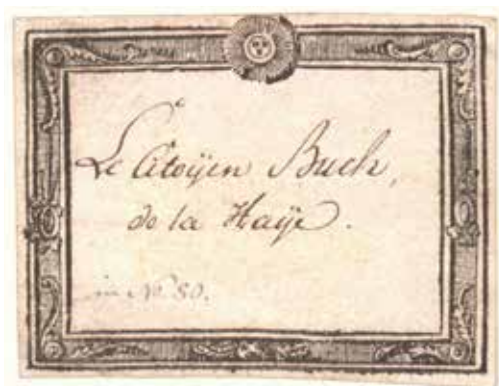 Le Citoÿen Buch,
de la Haÿe.
in No. 80.